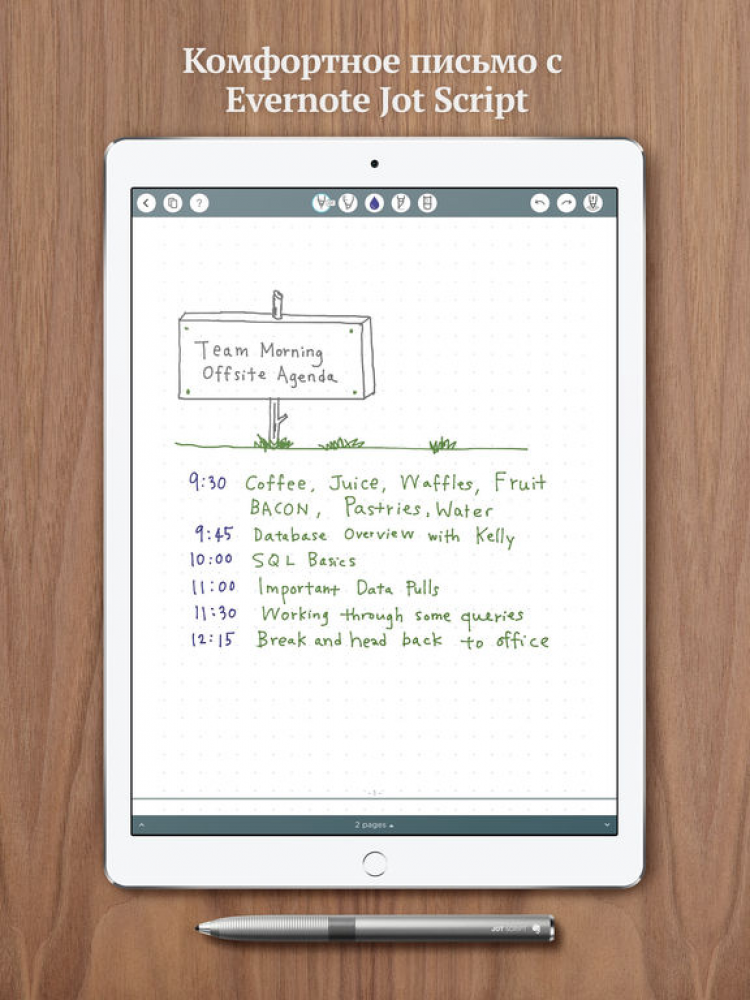 Комфортное письмо с
Evernote Jot Script
?
Team Morning
Offsite Agenda
9:30 Coffee, Juice, Waffles, Fruit
BACON, Pastries, Water
9:45 Database Overview with Kelly
10:00 SQL Basics
11:00 Important Data Pulls
11:30 Working through some queries
12:15 Break and head back to office
- 1 -
2 pages
JOT SCRIPT